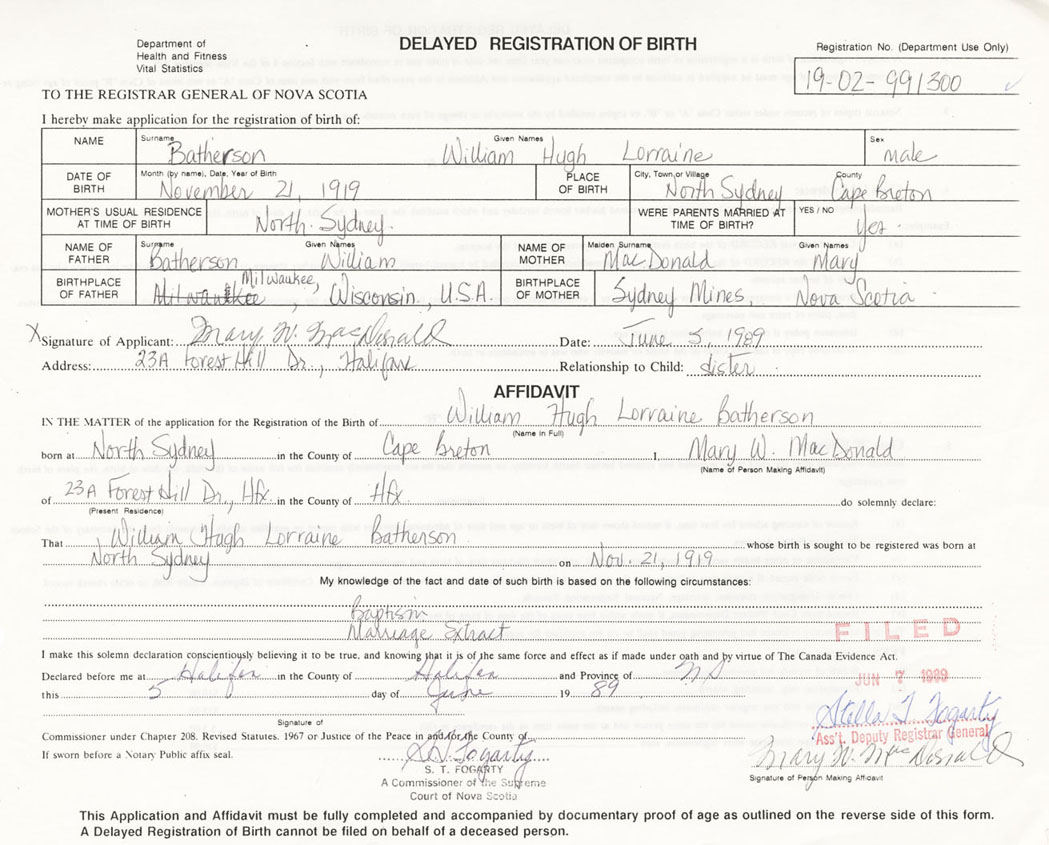 Department of
Health and Fitness
Vital Statistics
DELAYED REGISTRATION OF BIRTH
Registration No. (Department Use Only)
19-02-991300
TO THE REGISTRAR GENERAL OF NOVA SCOTIA
I hereby make application for the registration of birth of:
NAME Surname Batherson Given Names William Hugh Lorraine Sex male
DATE OF BIRTH Month (by name), Date, Year of Birth November 21, 1919 PLACE OF BIRTH City, Town or Village North Sydney County Cape Breton
MOTHER'S USUAL RESIDENCE AT TIME OF BIRTH North Sydney. WERE PARENTS MARRIED AT TIME OF BIRTH? YES / NO Yes.
NAME OF FATHER Surname Batherson Given Names William NAME OF MOTHER Maiden Surname MacDonald Given Names Mary
BIRTHPLACE OF FATHER Milwaukee Milwaukee, Wisconsin, U.S.A. BIRTHPLACE OF MOTHER Sydney Mines, Nova Scotia
X Signature of Applicant: Mary W. MacDonald Date: June 5, 1989
Address: 23A Forest Hill Dr., Halifax Relationship to Child: sister
AFFIDAVIT
IN THE MATTER of the application for the Registration of the Birth of William Hugh Lorraine Batherson
(Name in Full)
born at North Sydney in the County of Cape Breton I, Mary W. MacDonald
(Name of Person Making Affidavit)
of 23A Forest Hill Dr., Hfx. in the County of Hfx do solemnly declare:
(Present Residence)
That William Hugh Lorraine Batherson whose birth is sought to be registered was born at
North Sydney on Nov. 21, 1919
My knowledge of the fact and date of such birth is based on the following circumstances:
Baptism
Marriage Extract
FILED
I make this solemn declaration conscientiously believing it to be true, and knowing that it is of the same force and effect as if made under oath and by virtue of The Canada Evidence Act.
Declared before me at Halifax in the County of Halifax and Province of NS
JUN 7 1989
this 5 day of June 19 89
Stella T Fogarty
Signature of
Ass't. Deputy Registrar General
Commissioner under Chapter 208. Revised Statutes. 1967 or Justice of the Peace in and/or the County of
If sworn before a Notary Public affix seal.
S. T. Fogarty
Mary W. MacDonald
S. T. FOGARTY
A Commissioner of the Supreme
Court of Nova Scotia
Signature of Person Making Affidavit
This Application and Affidavit must be fully completed and accompanied by documentary proof of age as outlined on the reverse side of this form.
A Delayed Registration of Birth cannot be filed on behalf of a deceased person.